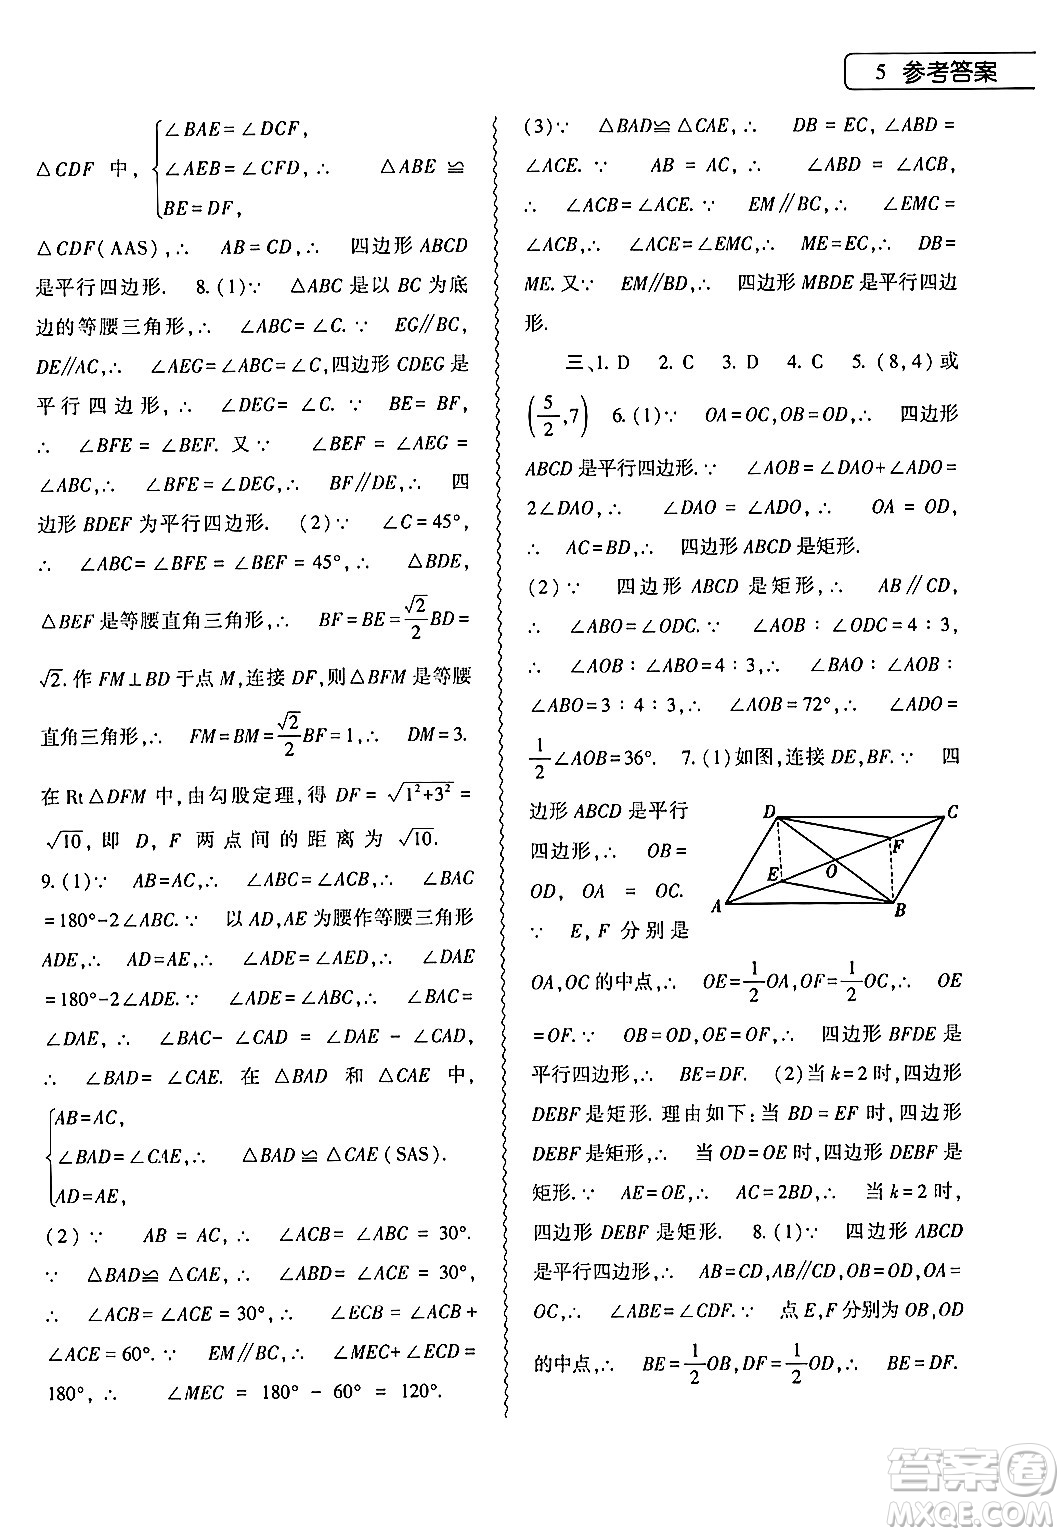 5 参考答案
△CDF 中, {∠BAE=∠DCF, ∠AEB=∠CFD, BE=DF, ∴ △ABE ≌
△CDF(AAS),∴ AB=CD,∴ 四边形 ABCD
是平行四边形. 8.(1)∵ △ABC 是以 BC 为底
边的等腰三角形,∴ ∠ABC=∠C.∵ EG∥BC,
DE∥AC,∴ ∠AEG=∠ABC=∠C,四边形 CDEG 是
平行四边形,∴ ∠DEG=∠C.∵ BE=BF,
∴ ∠BFE=∠BEF.又∵ ∠BEF=∠AEG=
∠ABC,∴ ∠BFE=∠DEG,∴ BF∥DE,∴ 四
边形 BDEF 为平行四边形. (2)∵ ∠C=45°,
∴ ∠ABC=∠BFE=∠BEF=45°,∴ △BDE,
△BEF 是等腰直角三角形,∴ BF=BE=√2/2BD=
√2.作 FM⊥BD 于点 M,连接 DF,则△BFM 是等腰
直角三角形,∴ FM=BM=√2/2BF=1,∴ DM=3.
在 Rt△DFM 中,由勾股定理,得 DF=√(1²+3²)=
√10,即 D,F 两点间的距离为 √10.
9.(1)∵ AB=AC,∴ ∠ABC=∠ACB,∴ ∠BAC
=180°-2∠ABC.∵ 以 AD,AE 为腰作等腰三角形
ADE,∴ AD=AE,∴ ∠ADE=∠AED,∴ ∠DAE
=180°-2∠ADE.∵ ∠ADE=∠ABC,∴ ∠BAC=
∠DAE,∴ ∠BAC-∠CAD=∠DAE-∠CAD,
∴ ∠BAD=∠CAE.在△BAD 和△CAE 中,
{AB=AC,
∠BAD=∠CAE,∴ △BAD≌△CAE(SAS).
AD=AE,
(2)∵ AB=AC,∴ ∠ACB=∠ABC=30°.
∵ △BAD≌△CAE,∴ ∠ABD=∠ACE=30°,
∴ ∠ACB=∠ACE=30°,∴ ∠ECB=∠ACB+
∠ACE=60°.∵ EM∥BC,∴ ∠MEC+∠ECD=
180°,∴ ∠MEC=180°-60°=120°.
(3)∵ △BAD≌△CAE,∴ DB=EC,∠ABD=
∠ACE.∵ AB=AC,∴ ∠ABD=∠ACB,
∴ ∠ACB=∠ACE.∵ EM∥BC,∴ ∠EMC=
∠ACB,∴ ∠ACE=∠EMC,∴ ME=EC,∴ DB=
ME.又∵ EM∥BD,∴ 四边形 MBDE 是平行四边
形.
三、1.D 2.C 3.D 4.C 5.(8,4)或
(5/2,7) 6.(1)∵ OA=OC,OB=OD,∴ 四边形
ABCD 是平行四边形.∵ ∠AOB=∠DAO+∠ADO=
2∠DAO,∴ ∠DAO=∠ADO,∴ OA=OD,
∴ AC=BD,∴ 四边形 ABCD 是矩形.
(2)∵ 四边形 ABCD 是矩形,∴ AB∥CD,
∴ ∠ABO=∠ODC.∵ ∠AOB∶∠ODC=4∶3,
∴ ∠AOB∶∠ABO=4∶3,∴ ∠BAO∶∠AOB∶
∠ABO=3∶4∶3,∴ ∠AOB=72°,∴ ∠ADO=
1/2∠AOB=36°. 7.(1)如图,连接 DE,BF.∵ 四
边形 ABCD 是平行
四边形,∴ OB=
OD,OA=OC.
∵ E,F 分别是
D C
F
E O
A B
OA,OC 的中点,∴ OE=1/2OA,OF=1/2OC,∴ OE
=OF.∵ OB=OD,OE=OF,∴ 四边形 BFDE 是
平行四边形,∴ BE=DF. (2)当 k=2 时,四边形
DEBF 是矩形.理由如下:当 BD=EF 时,四边形
DEBF 是矩形,∴ 当 OD=OE 时,四边形 DEBF 是
矩形.∵ AE=OE,∴ AC=2BD,∴ 当 k=2 时,
四边形 DEBF 是矩形. 8.(1)∵ 四边形 ABCD
是平行四边形,∴ AB=CD,AB∥CD,OB=OD,OA=
OC,∴ ∠ABE=∠CDF.∵ 点 E,F 分别为 OB,OD
的中点,∴ BE=1/2OB,DF=1/2OD,∴ BE=DF.
答案圈
MXQE.COM